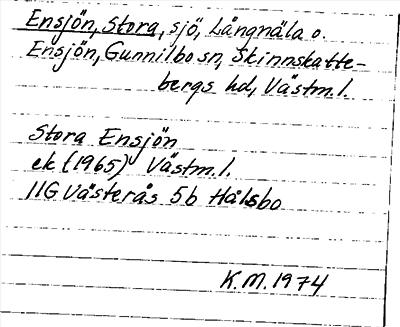 Ensjön, Stora, sjö, Långnäla o.
Ensjön, Gunnilbo sn, Skinnskatte-
bergs hd, Västm.l.
Stora Ensjön
ek (1965) Västm.l.
11G Västerås 5b Hålsbo
K.M. 1974